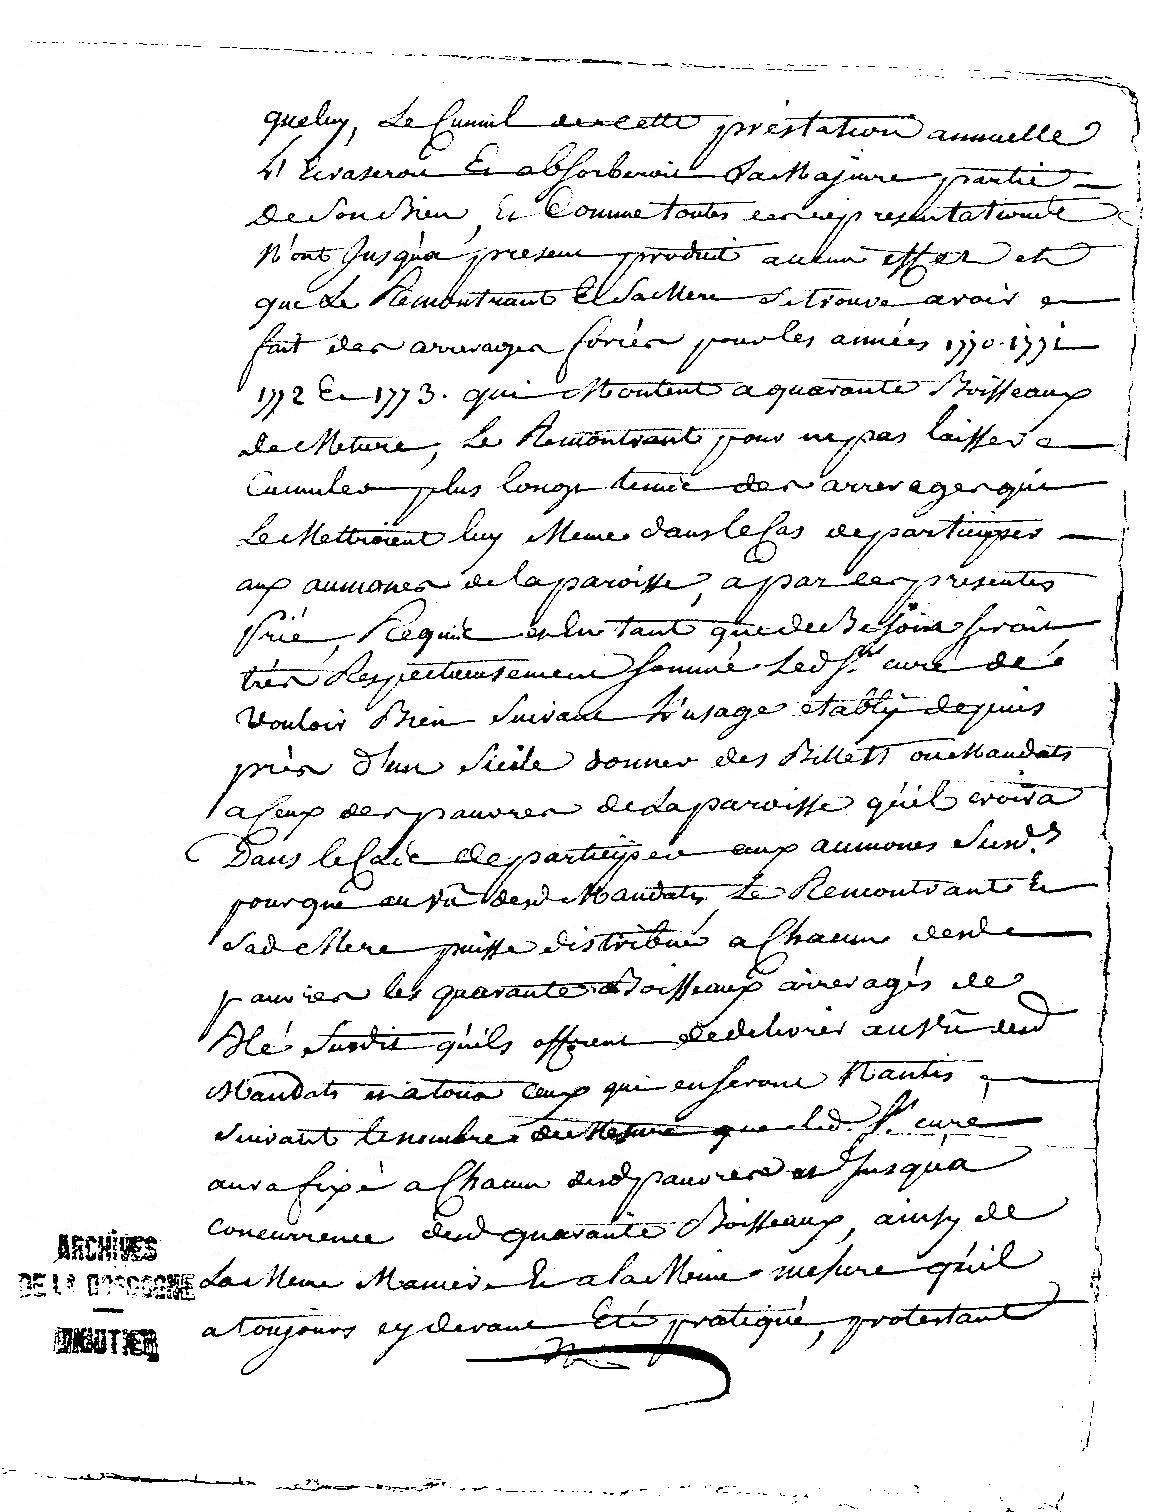 queluy, Le Cumul de cette préstation annuelle
L'Ecraseroit Et absorberoit La Majeure partie
de Son Bien, Et Comme toutes ces représentations
N'ont Jusqu'a présent produit aucun effet et
que Le Remontrant Et Sa Mere Se trouve avoir
fait des arrerages foriés pour les années 1770. 1771
1772 Et 1773. qui Montent a quarante Boisseaux
de Meture, Le Remontrant pour ne pas laisser
Cumuler plus longt temts des arrerages qui
Le Mettroient luy Meme dans le Cas de participer
aux aumones de la paroisse, a par ces presentes
Prié, Requis et En tant que de Besoin seroit
trés Respectueusement Sommé Led Sr. curé de
Vouloir Bien Suivant L'usage etably depuis
près d'un Siécle donner des Billets ou Mandats
a Ceux des pauvres de La paroisse qu'il croira
Dans le Cas de participer aux aumones Susd.es
pour que au Vû desd Mandats, Le Remontrant Et
Sad Mere puisse distribué a Chacun desd
pauvres les quarante Boisseaux arreragés de
Blé Susdit qu'ils offrent de delivrer au Vû desd
Mandats et a tous Ceux qui en Seront Nantis,
Suivant le nombre de Mesure que led. Sr. curé
aura fixé a Chacun desd pauvres et Jusqu'a
concurrence desd quarante Boisseaux, ainsy de
La Meme Maniere Et a la Meme mesure qu'il
a toujours cy devant Eté pratiqué, protestant
ARCHIVES
DE LA DORDOGNE